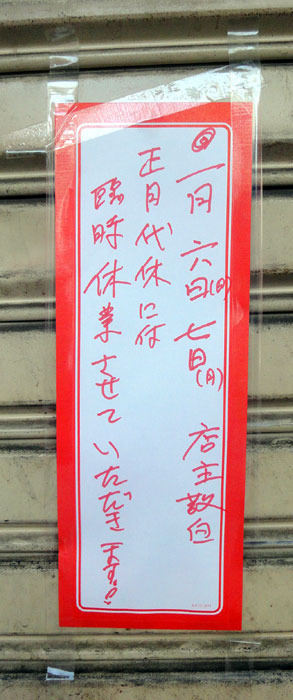 ◎一月六日(日)七日(月) 店主敬白
正月代休に付
臨時休業させていただきます。